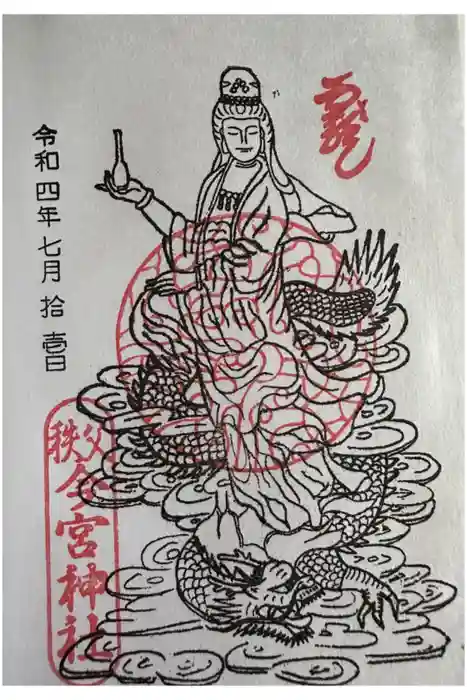 令和四年七月拾壱日
秩父
今宮神社